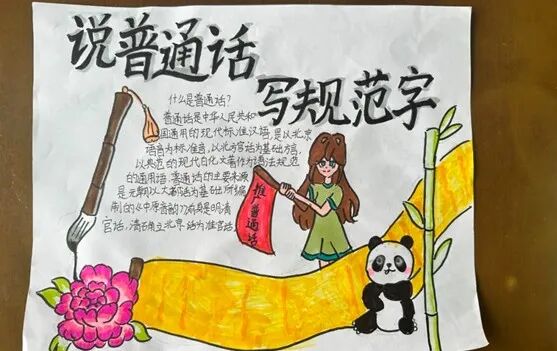 说普通话
写规范字
什么是普通话?
普通话是中华人民共和
国通用的现代标准汉语,是以北京
语音为标准音,以北方官话为基础方言,
以典范的现代白化文著作为语法规范
的通用语。普通话的主要来源
是元朝以大都话为基础所编
制的《中原音韵》
官话,清
推广普通话